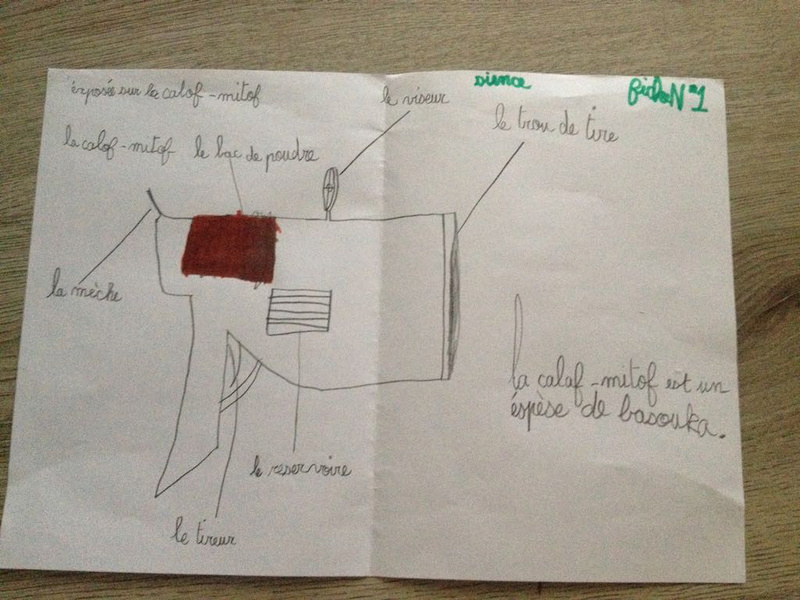 éxposés sur la calof-mitof
sience
fiche N°1
le viseur
le trou de tire
la calof-mitof
le bac de poudre
la mèche
la calaf-mitof est un
éspèse de basouka.
le reservoire
le tireur